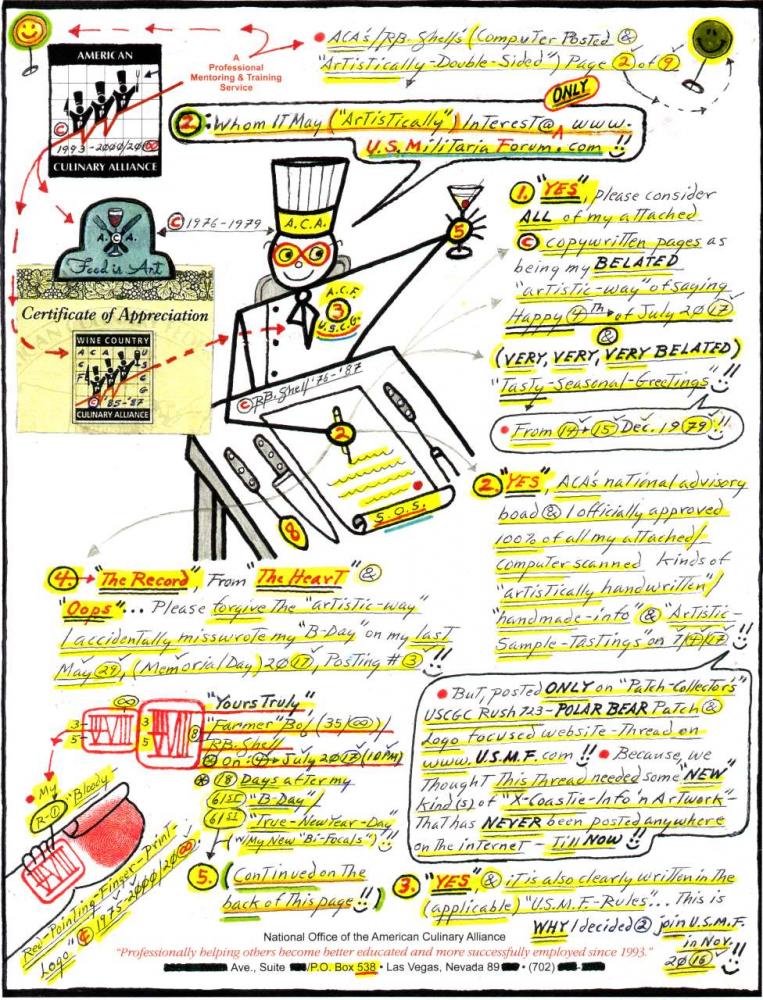 AMERICAN
© 1993-2000/20∞
CULINARY ALLIANCE
A
Professional
Mentoring & Training
Service
• ACA's/RB. Shell's (Computer Posted &
"Artistically-Double-Sided") Page 2 of 9
ONLY
2: Whom IT May ("Artistically") Interest @ www.
U.S. Militaria Forum.com !!
A.C.A.
© 1976-1979
A. C. A.
Food is Art
Certificate of Appreciation
WINE COUNTRY
A C A
© '85-'87
CULINARY ALLIANCE
A.C.F.
3
U.S.C.G.
5
© RB. Shell '76-'87
2
S.O.S.
8
1. "YES", please consider
ALL of my attached
© copywritten pages as
being my BELATED
"artistic-way" of saying
Happy 4th of July 2017
&
(VERY, VERY, VERY BELATED)
"Tasty-Seasonal-Greetings" !!
• From 14+15 Dec. 1979 !!
2. "YES", ACA's national advisory
boad & I officially approved
100% of all my attached/
computer scanned kinds of
"artistically handwritten"/
"handmade-info" & "Artistic-
Sample-Tastings" on 7/4/17 !!
• But, posted ONLY on "Patch-Collectors"
USCGC Rush 723-POLAR BEAR Patch &
Logo focused website-Thread on
www.U.S.M.F.com !! • Because, we
Thought This Thread needed some "NEW"
kind(s) of "X-Coastie-Info 'n Artwork"-
That has NEVER been posted anywhere
on the internet - Till NOW !!
4. "The Record", From "The Heart" &
"Oops"... Please forgive The "artistic-way"
I accidentally misswrote my "B-Day" on my last
May 29, (Memorial Day) 2017, Posting #3 !!
"Yours Truly"
"Farmer" Bob (35/∞)/
RB. Shell
On: 4 July 2017 (10PM)
18 Days after my
61st "B-Day"/
61st "True-New Year-Day"
(w/My New "Bi-Focals") !!
∞
3
5
3
5
8
• My
R-① "Bloody
Red-Pointing-Finger-Print-
Logo" © 1975-2000/20∞
5. (Continued on The
back of This page !!)
3. "YES" & it is also clearly written in the
(applicable) "U.S.M.F.-Rules"... This is
WHY I decided 2 join U.S.M.F.
in Nov.
2016 !!
National Office of the American Culinary Alliance
"Professionally helping others become better educated and more successfully employed since 1993."
Ave., Suite /P.O. Box 538 • Las Vegas, Nevada 89 • (702)